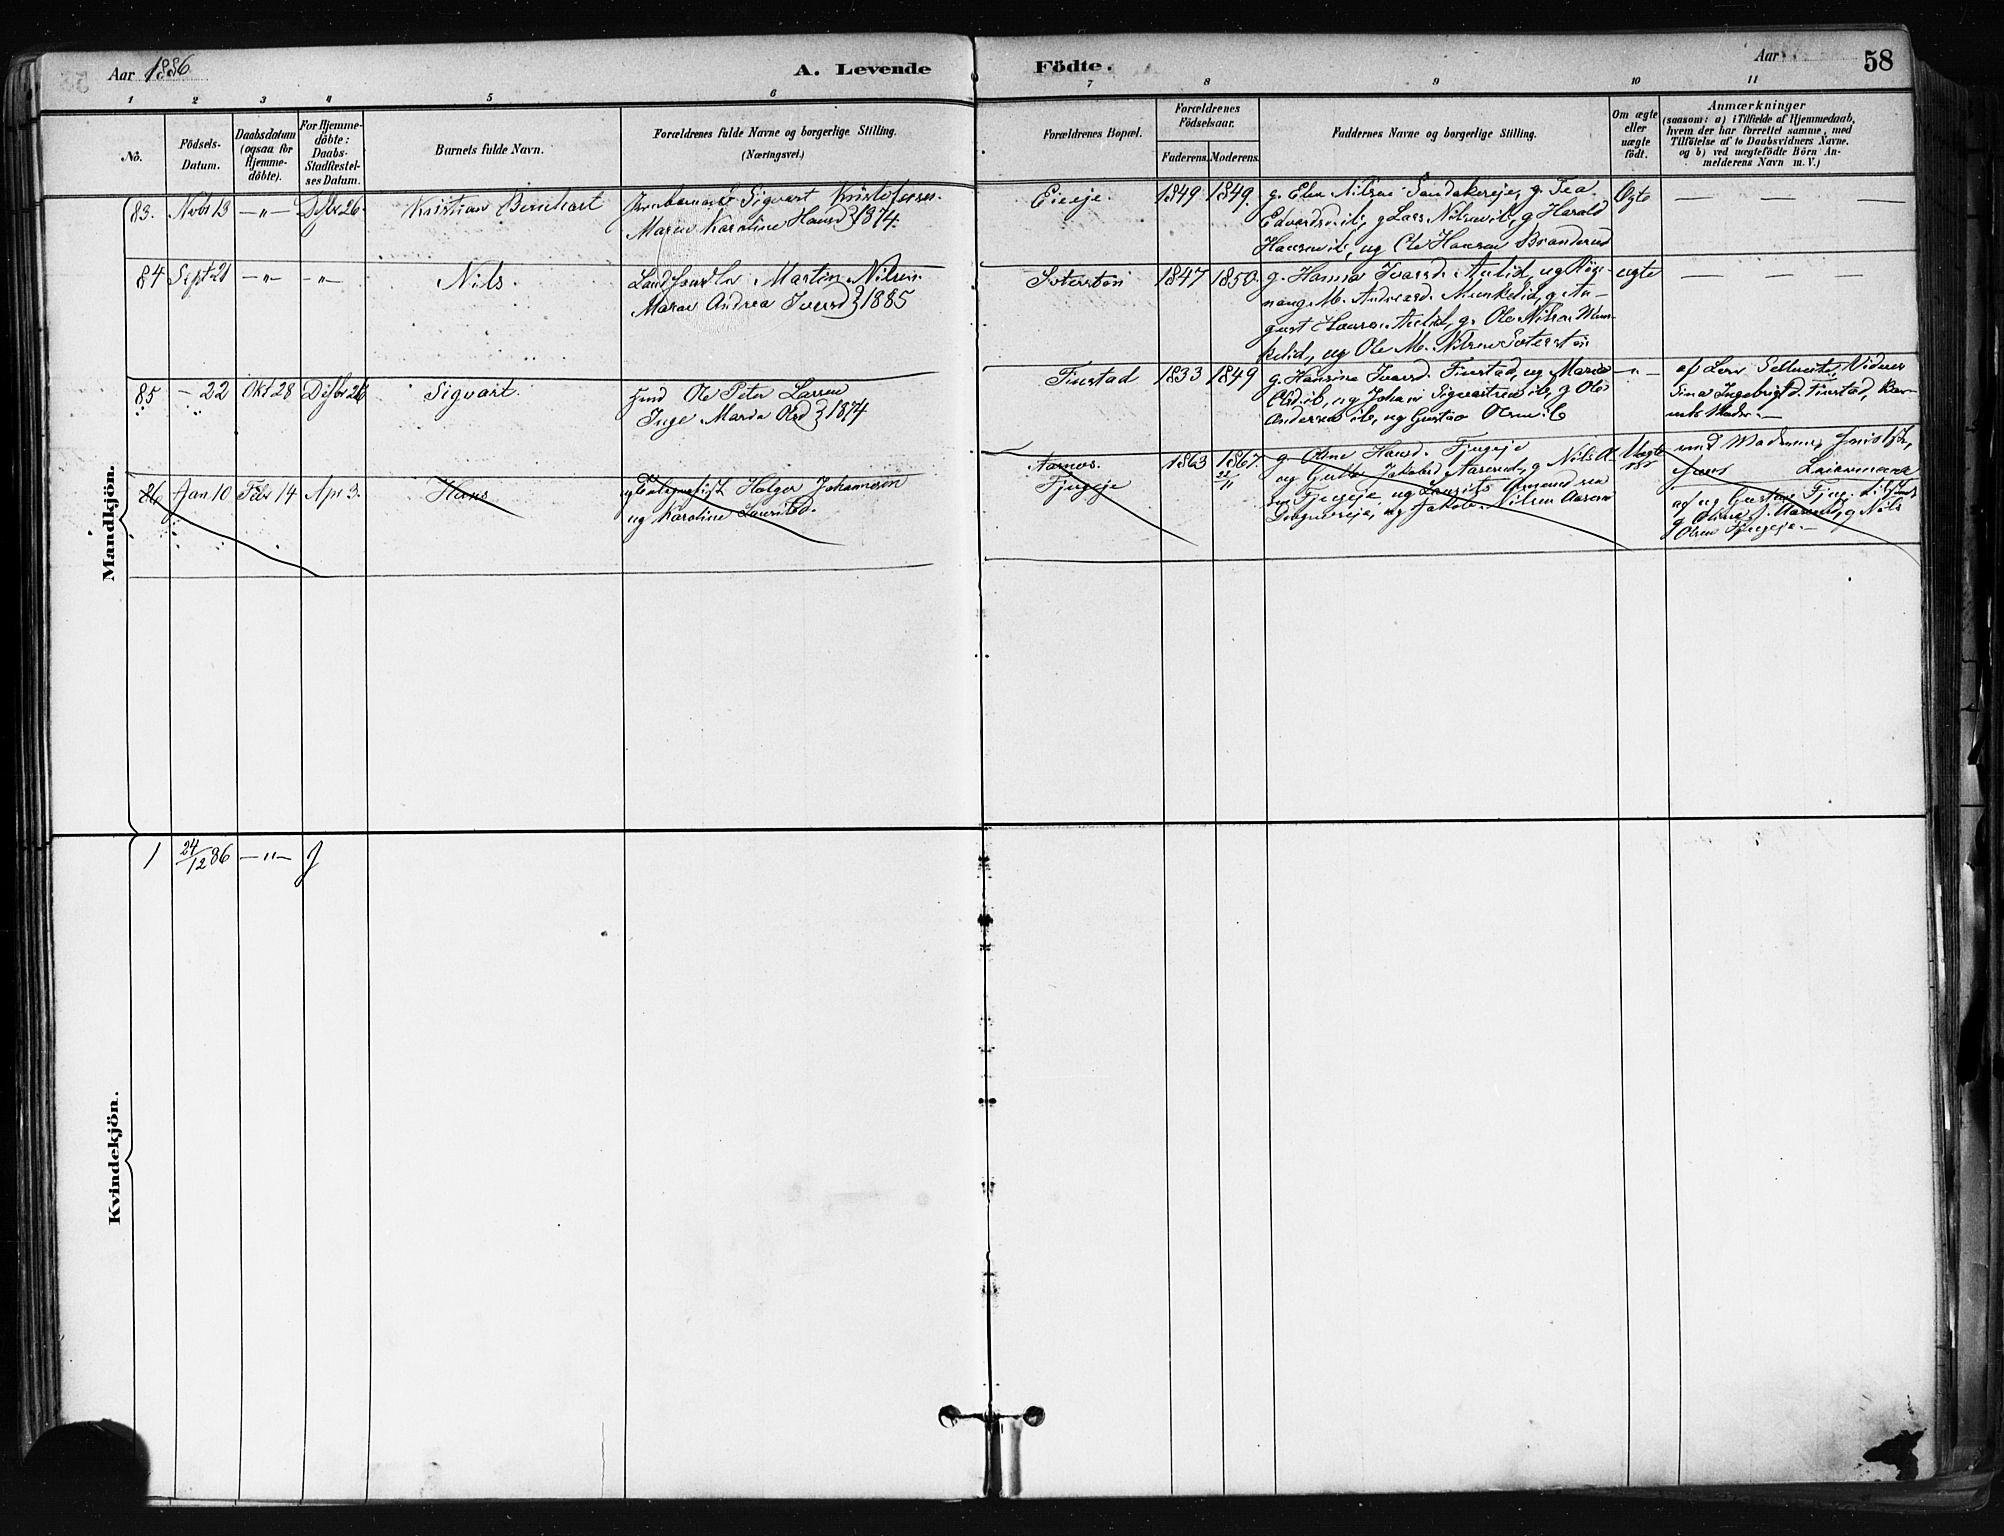 Aar 1886
A. Levende
Födte.
Aar
58
1 2 3 4 5 6 7 8 9 10 11
No.
Födsels-
Datum.
Daabsdatum
(ogsaa for
Hjemme-
döbte).
For Hjemme-
döbte:
Daabs-
Stadfæstel-
ses Datum.
Barnets fulde Navn.
Forældrenes fulde Navne og borgerlige Stilling.
(Næringsvei.)
Forældrenes Bopæl.
Forældrenes
Födselsaar.
Faderens.
Moderens.
Faddernes Navne og borgerlige Stilling.
Om ægte
eller
uægte
födt.
Anmærkninger
(saasom: a) i Tilfælde af Hjemmedaab,
hvem der har forrettet samme, med
Tilföielse af to Daabsvidners Navne.
og b) ved uægtefödte Börn An-
melderens Navn m. V.)
Mandkjön.
83. Nvbr 13 — " — Dsbr 26. Kristian Bernhart
Sigvart Kristofersen
Maren Karoline Hansd } 1874.
Eieeje. 1849 1849.
g. Elen Nilsen Sandakereje, g. Tea
Edvardsen ib, g Lars Nilsen ib, g Harald
Hansen ib, og Ole Hansen Branderud
Ægte — — —
84 Sept 21 — " — — " — Nils.
Martin Nilsen
Maren Andrea Iversd } 1885
1847 1850.
g. Hanna Ivarsd. Aulid, ug
M. Andreasd. Munkelid, g. Au-
gust Aulid, g. Ole Nilsen Mun-
kelid, ug Ole M. Nilsen
ægte — — —
85 — 22 Okt 28 Dsbr 26 Sigvart.
Ole Peter Larsen
Inge Maria Olsd } 1874
Finstad 1833 1849
g. Hansine Ivarsd. Finstad, ug Maria
Olsd ib, ug Johan Sigvartsen ib, g Ole
Andersen ib, ug Gustav Olsen ib
— " —
af Vidner
Sina Ingebrigtsd. Finstad, Bar-
nets Moder. —
86 Jan 10 Febr 14 Apr 3. Hans
Holger Johannesen
ug Karoline Lauritsd.
Aarnes.
Fjugeje
1863 1867.
22/11
g. Oline Hansd. Fjugeje
og Gulba Jakobsd Aaserud, g Nils Ol-
sen Fjugeje, ug Laurits Amundsen
ug Jakob Nilsen Aaserud
Uægte
g Oline J. Aaserud, g Nils
Olsen Fjugeje. —
Kvindekjön.
1 24/12 86 — " — J